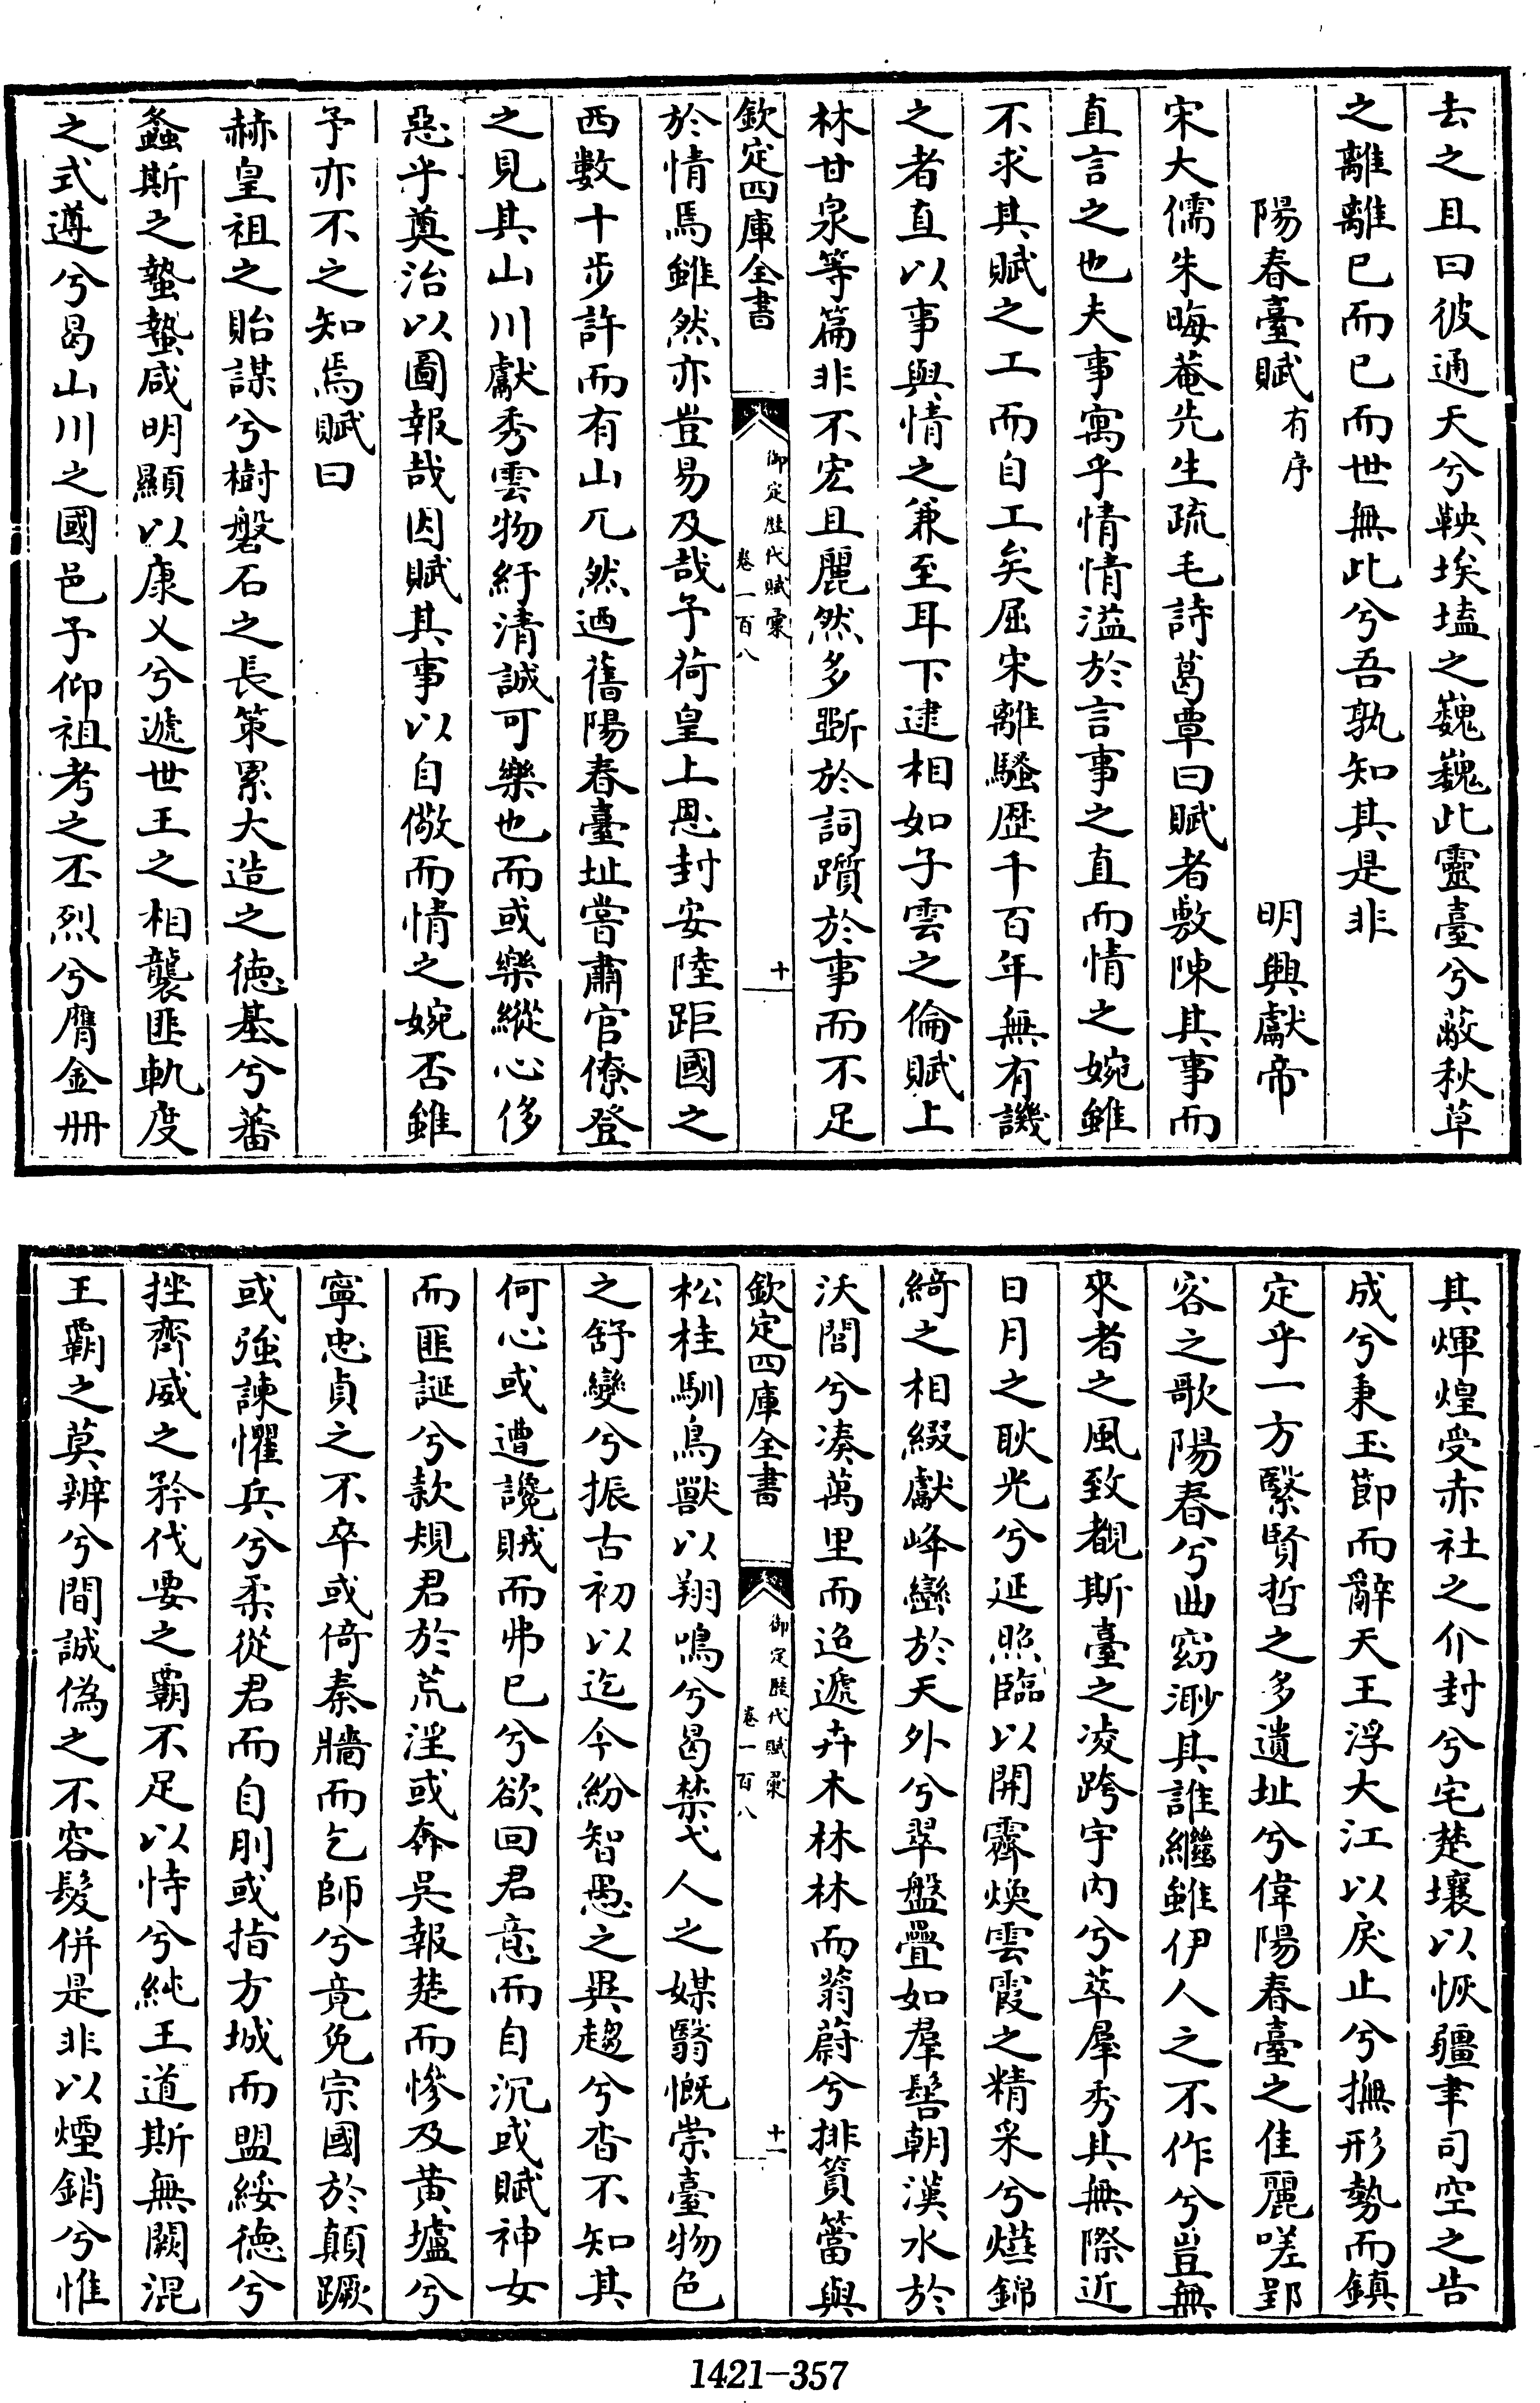 去之且曰彼通天兮軮埃壒之巍巍此靈臺兮蔽秋草
之離離已而已而世無此兮吾孰知其是非
陽春臺賦有序 明興獻帝
宋大儒朱晦菴先生疏毛詩葛覃曰賦者敷陳其事而
直言之也夫事寓乎情情溢於言事之直而情之婉雖
不求其賦之工而自工矣屈宋離騷歴千百年無有譏
之者直以事與情之兼至耳下逮相如子雲之倫賦上
林甘泉等篇非不宏且麗然多斲於詞躓於事而不足
欽定四庫全書 御定歴代賦彙 卷一百八 十
於情焉雖然亦豈易及哉予荷皇上恩封安陸距國之
西數十步許而有山兀然迺舊陽春臺址嘗肅官僚登
之見其山川獻秀雲物紆清誠可樂也而或樂縱心侈
惡乎奠治以圖報哉因賦其事以自儆而情之婉否雖
予亦不之知焉賦曰
赫皇祖之貽謀兮樹磐石之長策累大造之德基兮蕃
螽斯之蟄蟄咸明顯以康乂兮遞世王之相襲匪軌度
之式遵兮曷山川之國邑予仰祖考之丕烈兮膺金冊
其煇煌受赤社之介封兮宅楚壤以恢疆聿司空之告
成兮秉玉節而辭天王浮大江以戾止兮撫形勢而鎮
定乎一方繄賢哲之多遺址兮偉陽春臺之佳麗嗟郢
客之歌陽春兮曲窈渺其誰繼雖伊人之不作兮豈無
來者之風致覩斯臺之凌跨宇内兮萃羣秀其無際近
日月之耿光兮延照臨以開霽煥雲霞之精采兮燨錦
綺之相綴獻峰巒於天外兮翠盤疊如羣髻朝漢水於
沃閭兮湊萬里而迢遞卉木林林而蓊蔚兮排篔簹與
欽定四庫全書 御定歴代賦彙 卷一百八 十一
松桂馴鳥獸以翔鳴兮曷禁弋人之媒翳慨崇臺物色
之舒變兮振古初以迄今紛智愚之異趨兮杳不知其
何心或遭讒賊而弗已兮欲回君意而自沉或賦神女
而匪誕兮款規君於荒淫或奔吳報楚而慘及黄壚兮
寧忠貞之不卒或倚秦牆而乞師兮竟免宗國於顛蹶
或強諫懼兵兮柔從君而自刖或指方城而盟綏德兮
挫齊威之矜伐要之覇不足以恃兮純王道斯無闕混
王覇之莫辨兮間誠偽之不容髮併是非以煙銷兮惟
1421-357